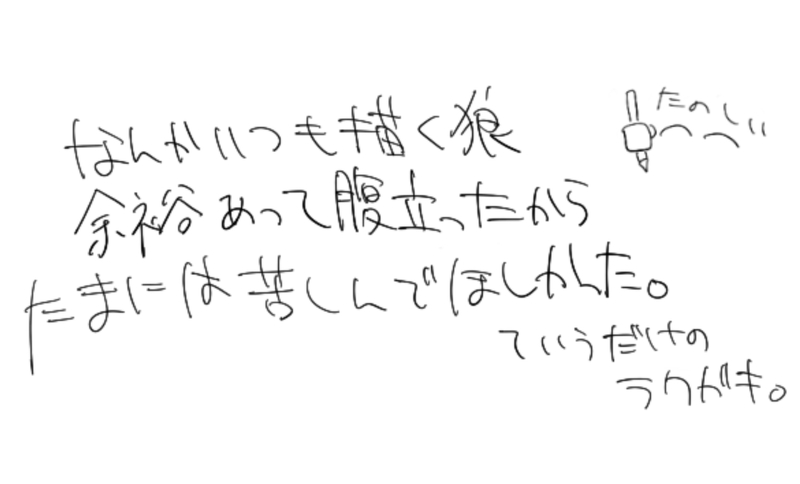 なんかいつも描く狼
余裕あって腹立ったから
たまには苦しんでほしかんた。
ていうだけの
ラクガキ。
たのしい